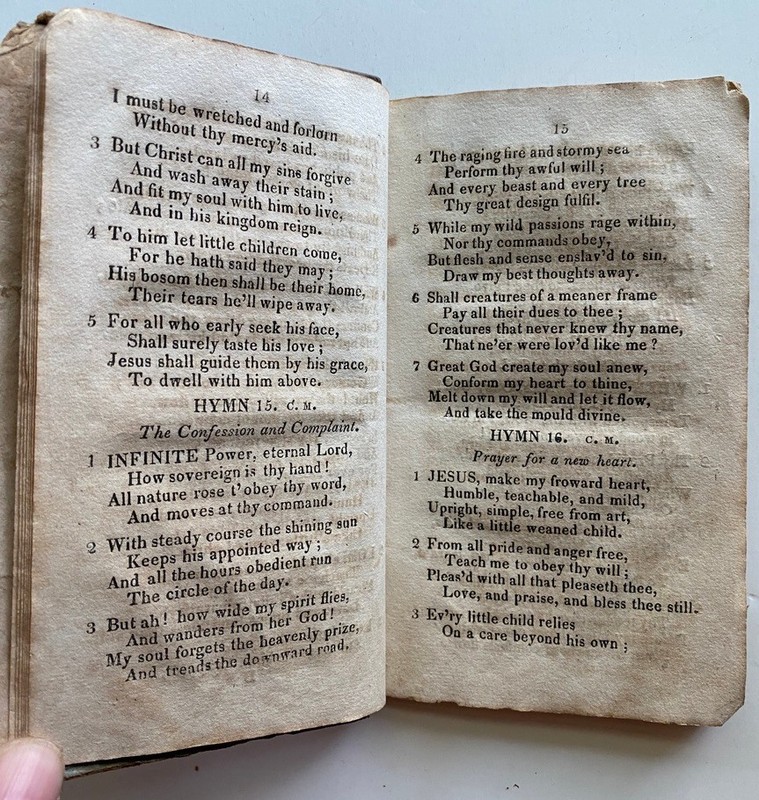 14
I must be wretched and forlorn
Without thy mercy's aid.
3 But Christ can all my sins forgive
And wash away their stain;
And fit my soul with him to live,
And in his kingdom reign.
4 To him let little children come,
For he hath said they may;
His bosom then shall be their home,
Their tears he'll wipe away.
5 For all who early seek his face,
Shall surely taste his love;
Jesus shall guide them by his grace,
To dwell with him above.
HYMN 15. C. M.
The Confession and Complaint.
1 INFINITE Power, eternal Lord,
How sovereign is thy hand!
All nature rose t'obey thy word,
And moves at thy command.
2 With steady course the shining sun
Keeps his appointed way;
And all the hours obedient run
The circle of the day.
3 But ah! how wide my spirit flies,
And wanders from her God!
My soul forgets the heavenly prize,
And treads the downward road.
15
4 The raging fire and stormy sea
Perform thy awful will;
And every beast and every tree
Thy great design fulfil.
5 While my wild passions rage within,
Nor thy commands obey,
But flesh and sense enslav'd to sin,
Draw my best thoughts away.
6 Shall creatures of a meaner frame
Pay all their dues to thee;
Creatures that never knew thy name,
That ne'er were lov'd like me?
7 Great God create my soul anew,
Conform my heart to thine,
Melt down my will and let it flow,
And take the mould divine.
HYMN 16. C. M.
Prayer for a new heart.
1 JESUS, make my froward heart,
Humble, teachable, and mild,
Upright, simple, free from art,
Like a little weaned child.
2 From all pride and anger free,
Teach me to obey thy will;
Pleas'd with all that pleaseth thee,
Love, and praise, and bless thee still.
3 Ev'ry little child relies
On a care beyond his own;